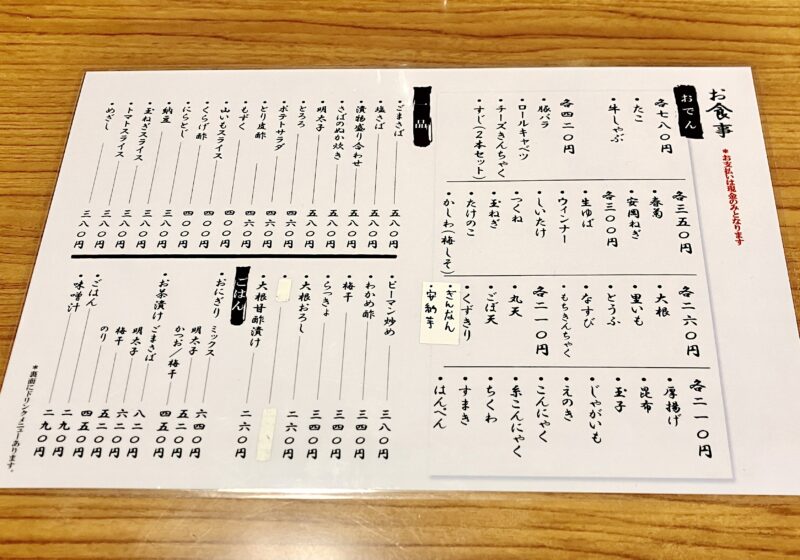 お食事
＊お支払いは現金のみとなります
おでん
各七八〇円
・たこ
・牛しゃぶ
各四二〇円
・豚バラ
・ロールキャベツ
・チーズきんちゃく
・すじ(2本セット)
各三五〇円
・春菊
・安岡ねぎ
各三〇〇円
・生ゆば
・ウィンナー
・しいたけ
・つくね
・玉ねぎ
・たけのこ
・かしわ(梅しそ)
各二六〇円
・大根
・里いも
・とうふ
・なすび
・もちきんちゃく
各二一〇円
・丸天
・ごぼ天
・くずきり
・ぎんなん
・安納芋
各二一〇円
・厚揚げ
・昆布
・玉子
・じゃがいも
・えのき
・こんにゃく
・糸こんにゃく
・ちくわ
・すまき
・はんぺん
一品
・ごまさば 五八〇円
・塩さば 五八〇円
・漬物盛り合わせ 五八〇円
・さばのぬか炊き 五八〇円
・明太子 五八〇円
・とろろ 五八〇円
・ポテトサラダ 四六〇円
・とり皮酢 四六〇円
・もずく 四〇〇円
・山いもスライス 四〇〇円
・くらげ酢 四〇〇円
・にらとじ 四〇〇円
・納豆 三八〇円
・玉ねぎスライス 三八〇円
・トマトスライス 三八〇円
・めざし 三八〇円
・ピーマン炒め 三八〇円
・わかめ酢 三四〇円
・梅干 三四〇円
・らっきょ 三四〇円
・大根おろし 二六〇円
・大根甘酢漬け 二六〇円
ごはん
・おにぎり ミックス 六四〇円
明太子 五二〇円
かつお／梅干 四五〇円
・お茶漬け ごまさば 八二〇円
明太子 六二〇円
梅干 五二〇円
のり 四五〇円
・ごはん 二九〇円
・味噌汁 二九〇円
＊裏面にドリンクメニューあります。